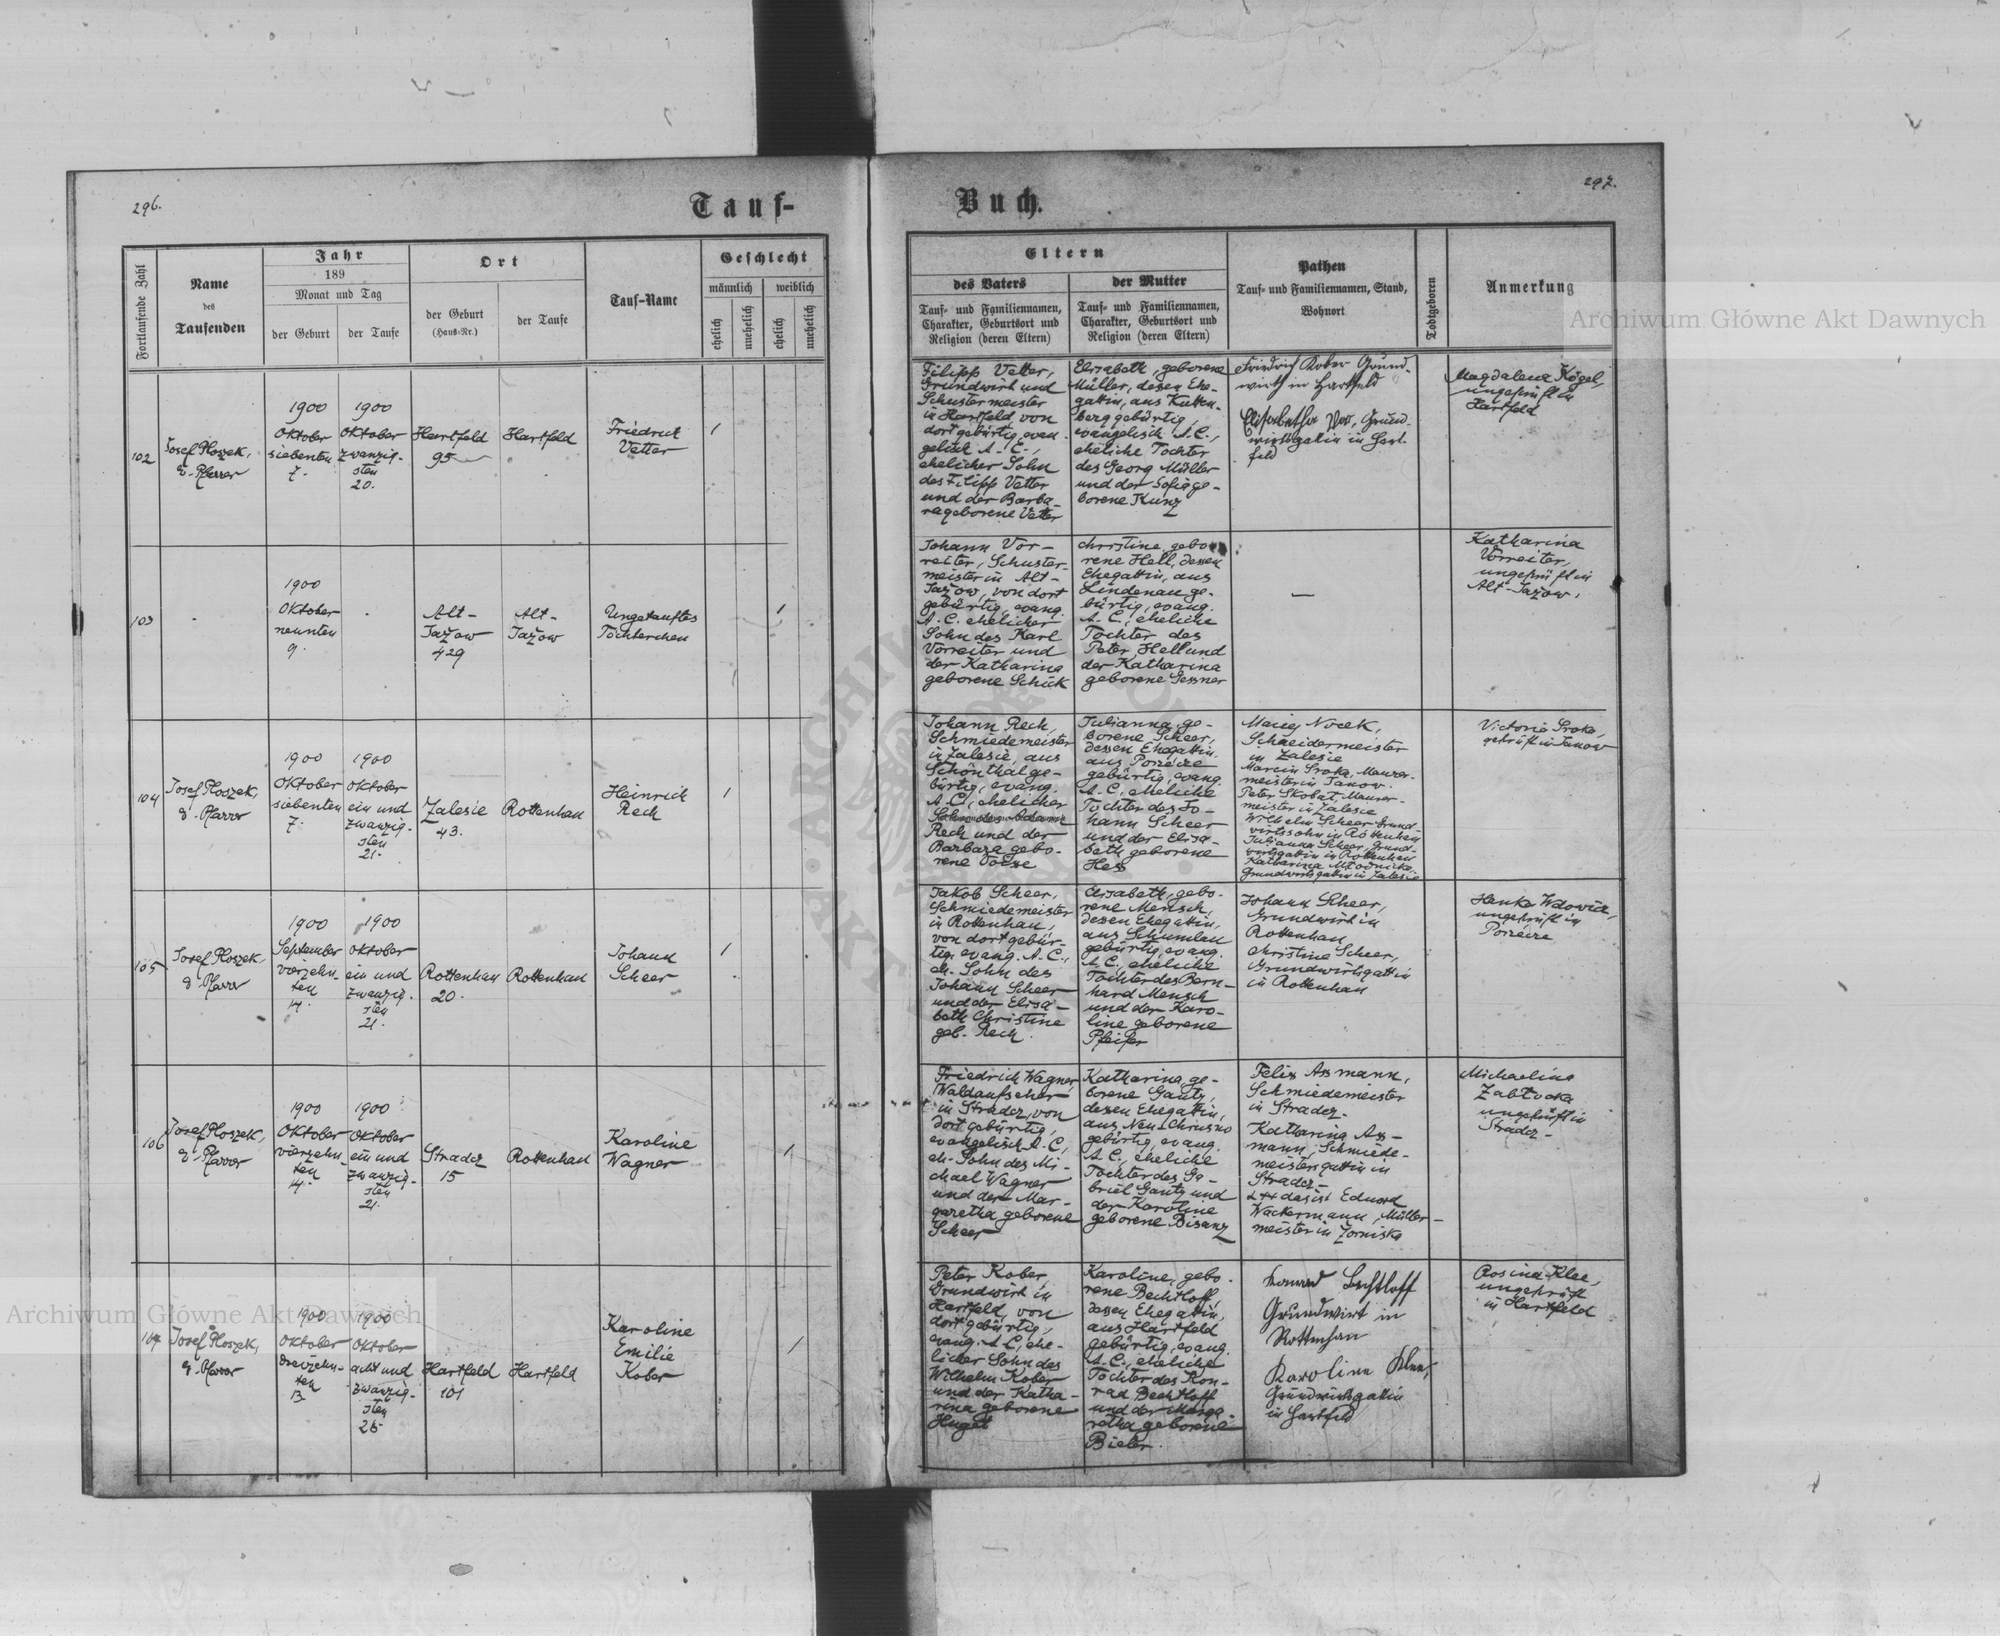 296.
Tauf-
Buch.
297.
Fortlaufende Zahl
Name
des
Taufenden
Jahr
189
Monat und Tag
der Geburt
der Taufe
Ort
der Geburt
(Haus-Nr.)
der Taufe
Tauf-Name
Geschlecht
männlich
weiblich
ehelich
unehelich
ehelich
unehelich
Eltern
des Vaters
Tauf- und Familiennamen,
Charakter, Geburtsort und
Religion (deren Eltern)
der Mutter
Tauf- und Familiennamen,
Charakter, Geburtsort und
Religion (deren Eltern)
Pathen
Tauf- und Familiennamen, Stand,
Wohnort
Todtgeboren
Anmerkung
Archiwum Główne Akt Dawnych
102
Josef Ploszek,
e. Pfarrer
1900
Oktober
siebenten
7.
1900
Oktober
zwanzig-
sten
20.
Hartfeld
95
Hartfeld
Friedrich
Vetter
1
Filipp Vetter,
Grundwirt und
Schustermeister
in Hartfeld, von
dort gebürtig, evan-
gelisch A. C.,
ehelicher Sohn
des Filipp Vetter
und der Barba-
ra geborene Vetter
Elisabeth, geborene
Müller, dessen Ehe-
gattin, aus Kutten-
berg gebürtig,
evangelisch A. C.,
eheliche Tochter
des Georg Müller
und der Sofia ge-
borene Kunz
Friedrich Kober Grund-
wirth in Hartfeld
Elisabetha, Grund-
wirtsgattin in Hart-
feld
Magdalena Kögel,
ungeprüft in
Hartfeld
103
1900
Oktober
neunten
9.
Alt-
Jazow
429
Alt-
Jazow
Ungetauftes
Töchterchen
1
Johann Vor-
reiter, Schuster-
meister in Alt-
Jazow, von dort
gebürtig, evang.
A. C. ehelicher
Sohn des Karl
Vorreiter und
der Katharina
geborene Schick
Christine, gebo
rene Hell, dessen
Ehegattin, aus
Lindenau ge-
bürtig, evang.
A. C., eheliche
Tochter des
Peter Hell und
der Katharina
geborene Gessner
—
Katharina
Vorreiter,
ungeprüft in
Alt-Jazow.
104
Josef Ploszek,
e. Pfarrer
1900
Oktober
siebenten
7.
1900
Oktober
ein und
zwanzig-
sten
21.
Zalesie
43.
Rottenhan
Heinrich
Rech
1
Johann Rech,
Schmiedemeister
in Zalesie, aus
Schönthal ge-
bürtig, evang.
A. C., ehelicher
Sohn des Adam
Rech und der
Barbara gebo-
rene
Julianna, ge-
borene Scheer,
dessen Ehegattin
aus Porzecze
gebürtig, evang.
A. C., eheliche
Tochter des Jo-
hann Scheer
und der Elisa-
beth geborene
Hess
Maciej Nocek,
Schneidermeister
in Zalesie
Marcin Sroka, Maurer-
meister in Janow.
Peter Skobat, Maurer-
meister in Zalesie
Wilhelm Scheer Grund-
wirtssohn in Rottenhan
Julianna Scheer, Grund-
wirtsgattin in Rottenhan
Katharina Młodnicka
Grundwirtsgattin in Zalesie
Victoria Sroka,
geprüft in Janow
105
Josef Ploszek,
e. Pfarrer
1900
September
vierzehn-
ten
14.
1900
Oktober
ein und
zwanzig-
sten
21.
Rottenhan
20.
Rottenhan
Johann
Scheer
1
Jakob Scheer,
Schmiedemeister
in Rottenhan,
von dort gebür-
tig, evang. A. C.,
eh. Sohn des
Johann Scheer
und der Elisa-
beth Christine
geb. Rech
Elisabeth, gebo-
rene Mensch,
dessen Ehegattin,
aus Schumlau
gebürtig, evang.
A. C. eheliche
Tochter des Bern-
hard Mensch
und der Karo-
line geborene
Pfeifer
Johann Scheer,
Grundwirt in
Rottenhan
Christine Scheer,
Grundwirtsgattin
in Rottenhan
Henka Wdowia,
ungeprüft in
Porzecze
106
Josef Ploszek,
e. Pfarrer
1900
Oktober
vierzehn-
ten
14.
1900
Oktober
ein und
zwanzig-
sten
21.
Stradcz
15
Rottenhan
Karoline
Wagner
1
Friedrich Wagner,
Waldaufseher
in Stradcz, von
dort gebürtig,
evangelisch A. C.,
eh. Sohn des Mi-
chael Wagner
und der Mar-
garetha geborene
Scheer
Katharina, ge-
borene Gantz,
dessen Ehegattin,
aus Neu Chrusno
gebürtig, evang.
A. C., eheliche
Tochter des Ga-
briel Gantz und
der Karoline
geborene Bisanz
Felix Assmann,
Schmiedemeister
in Stradcz-
Katharina Ass-
mann, Schmiede-
meistersgattin in
Stradcz-
das ist Eduard
Wackermann, Müller-
meister in Zorniska
Michaelina
Zabłocka
ungeprüft in
Stradcz-
107
Josef Ploszek,
e. Pfarrer
1900
Oktober
dreizehn-
ten
13
1900
Oktober
acht und
zwanzig-
sten
28
Hartfeld
101
Hartfeld
Karoline
Emilie
Kober
1
Peter Kober,
Grundwirt in
Hartfeld, von
dort gebürtig,
evang. A. C., ehe-
licher Sohn des
Wilhelm Kober
und der Katha-
rina geborene
Huget
Karoline, gebo-
rene Bechtloff,
dessen Ehegattin,
aus Hartfeld
gebürtig, evang.
A. C., eheliche
Tochter des Kon-
rad Bechtloff
und der Marga-
retha geborene
Bieler.
Konrad Bechtloff
Grundwirt in
Rottenhan
Karoline Klee,
Grundwirtsgattin
in Hartfeld
Rosina Klee,
ungeprüft
in Hartfeld
Archiwum Główne Akt Dawnych